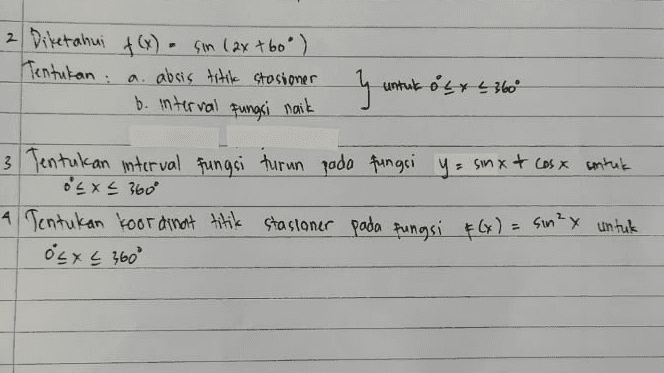 2 Diketahui f(x) = sin (2x + 60°)
Tentukan : a. absis titik stasioner } untuk 0° ≤ x ≤ 360°
b. interval fungsi naik
3 Tentukan interval fungsi turun pada fungsi y = sin x + cos x untuk
0° ≤ x ≤ 360°
4 Tentukan koordinat titik stasioner pada fungsi f(x) = sin² x untuk
0° ≤ x ≤ 360°